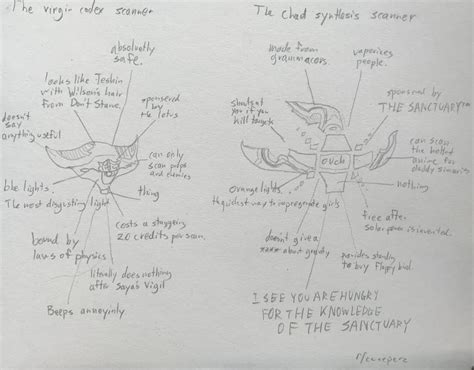 The virgin codex scanner
absolutely
safe.
looks like Teshin
with Wilson's hair
from Don't Starve.
sponsored
by
the lotus
doesn't
say
anything useful
can only
scan
and enemies
ble lights.
The most disgusting light
thing
costs a staggering
20 credits per scan.
bound by
laws of physics
literally does nothing
after Saya's Vigil
Beeps annoyingly
The Chad synthesis scanner
made from
grammacors.
vaporizes
people.
shouts at
you if you
kill targets
sponsored by
THE SANCTUARY™
OUCH
can scan
the
anime for
daddy simaris
orange lights
the quickest way to impregnate girls
nothing
free after
solar power is invented.
doesn't give a
**** about gravity
to buy
I SEE YOU ARE HUNGRY
FOR THE KNOWLEDGE
OF THE SANCTUARY